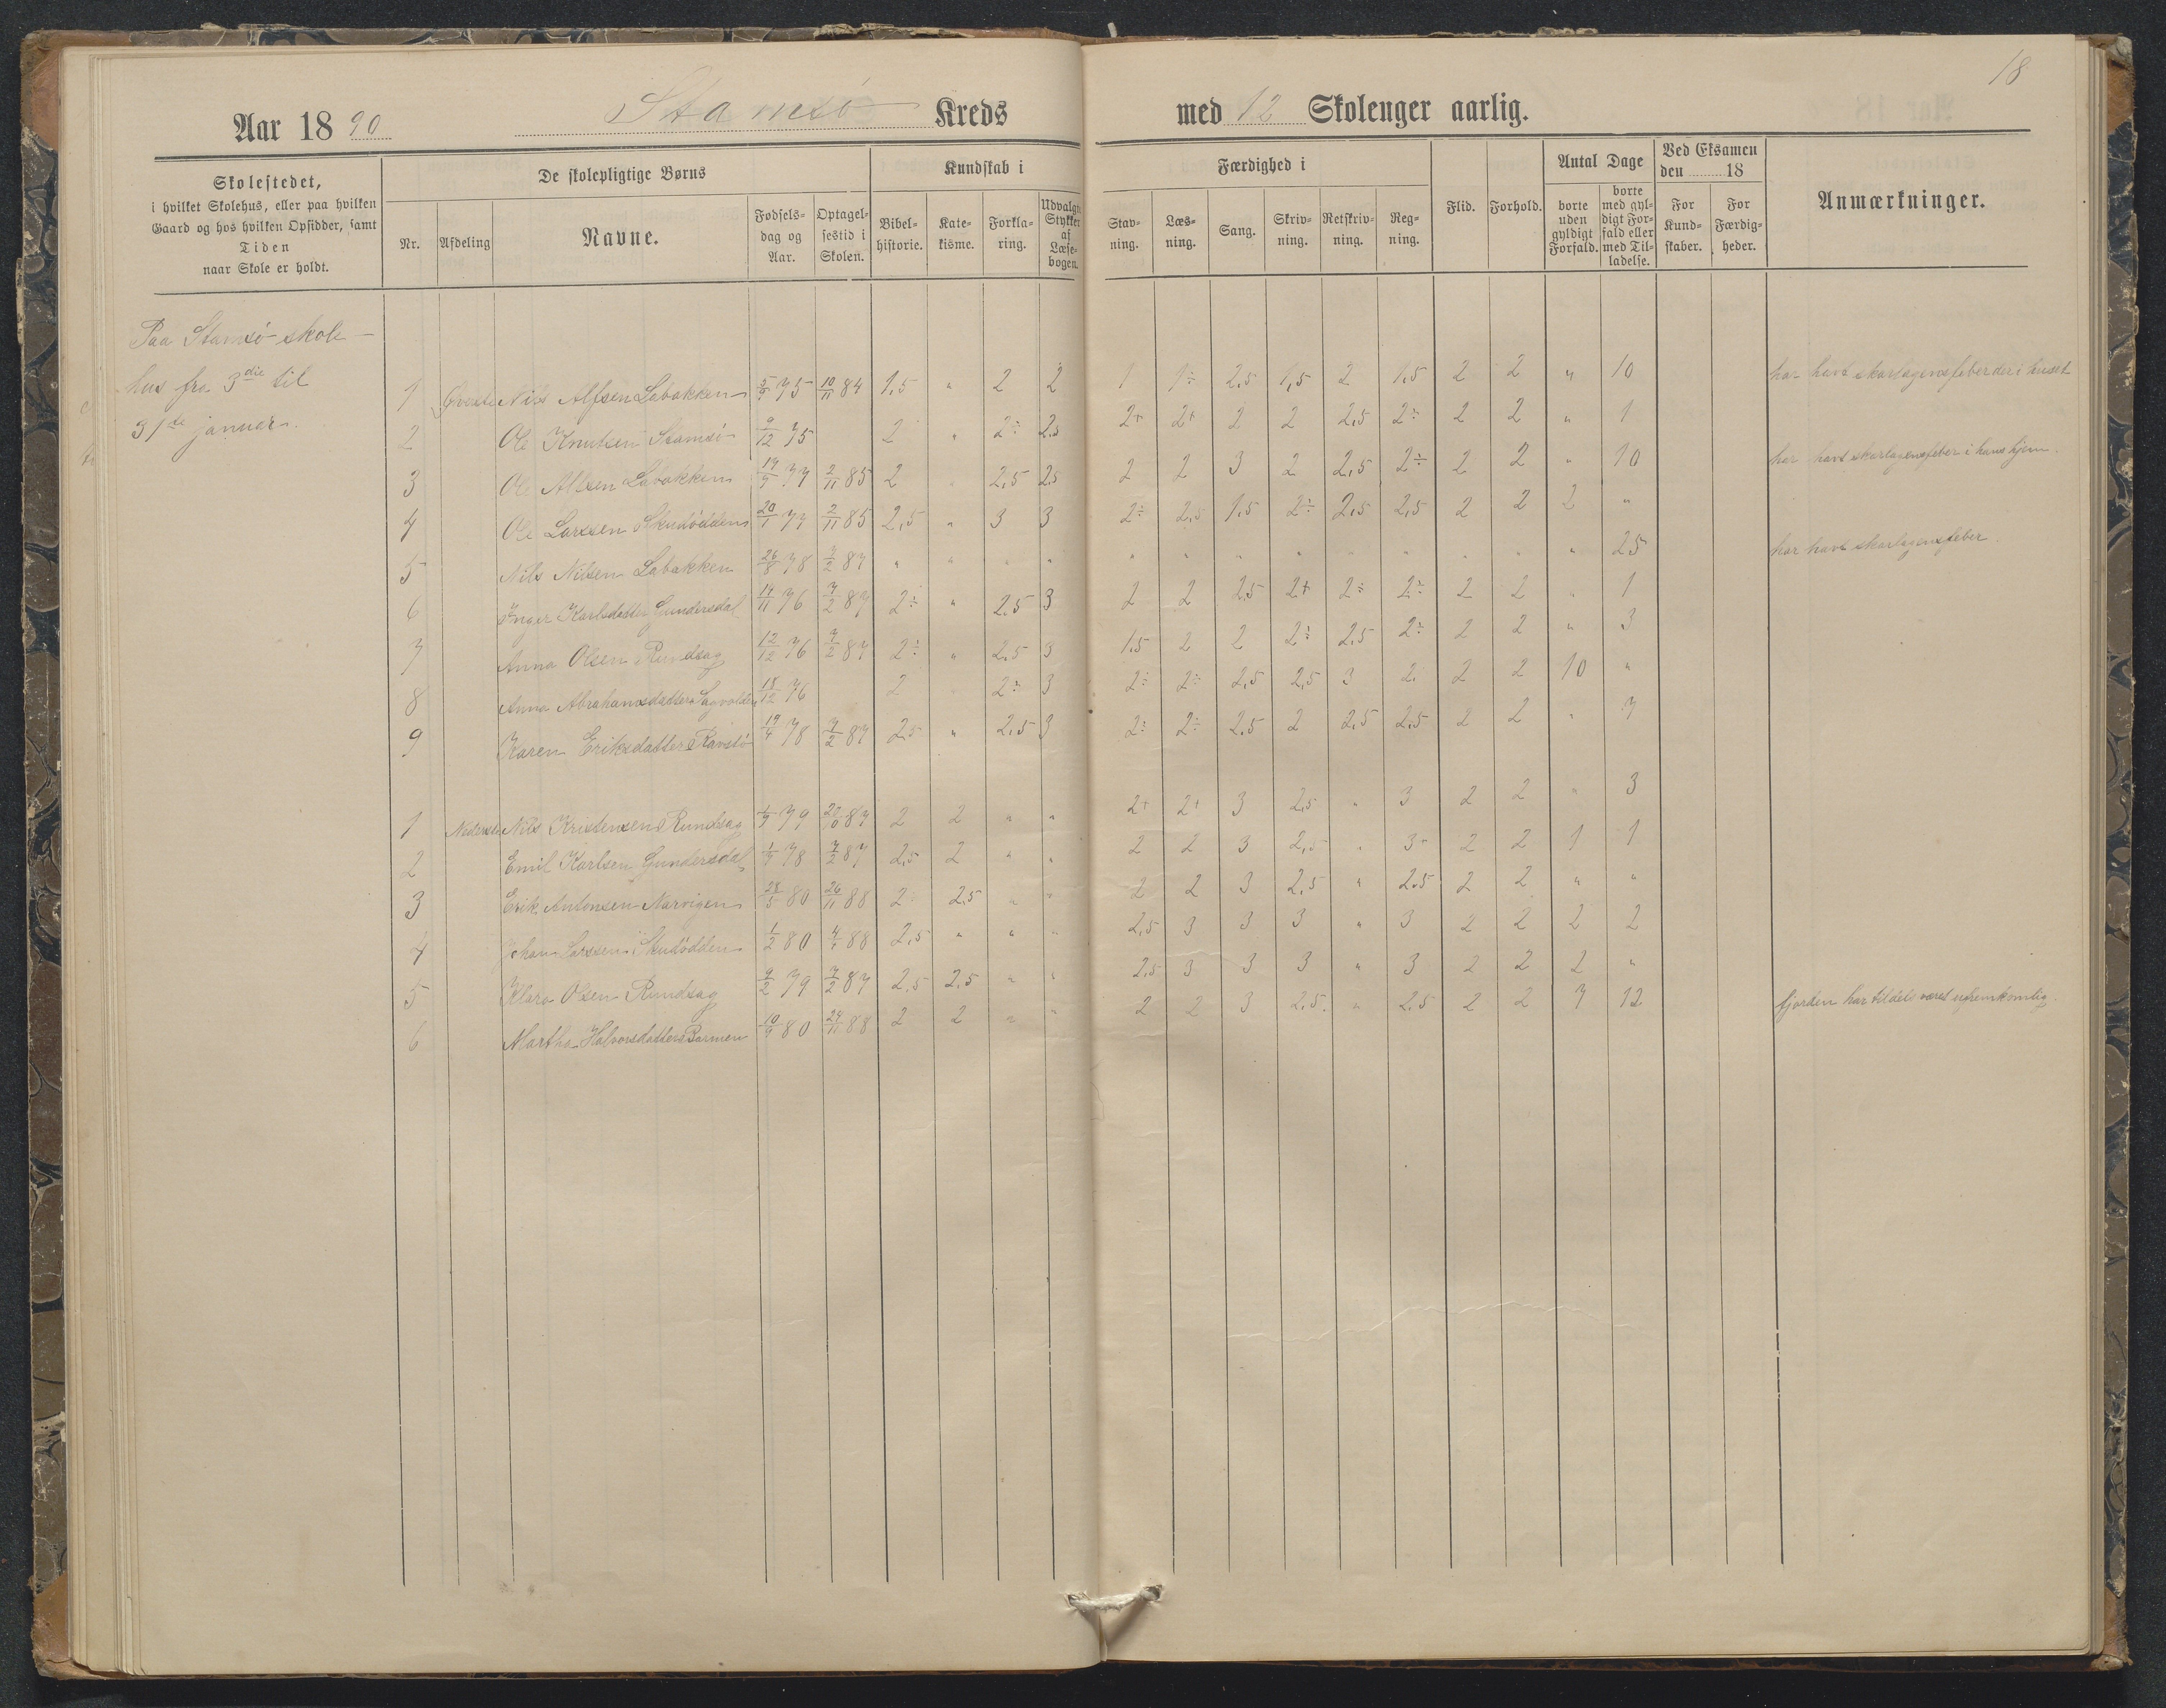 18
Aar 1890 Stamsö Kreds med 12 Skolenger aarlig.
Skolestedet, i hvilket Skolehus, eller paa hvilken Gaard og hos hvilken Opsidder, samt Tiden naar Skole er holdt.
De skolepligtige Børns
Nr. Afdeling Navne. Fødselsdag og Aar. Optagelsestid i Skolen.
Kundskab i
Bibelhistorie. Katekisme. Forklaring. Udvalgte Stykker af Læsebogen.
Færdighed i
Stavning. Læsning. Sang. Skrivning. Retskrivning. Regning.
Flid. Forhold.
Antal Dage
borte uden gyldigt Forfald. borte med gyldigt Forfald eller med Tilladelse.
Ved Eksamen den 18
For Kundskaber. For Færdigheder.
Anmærkninger.
Paa Stamsö skole-
hus fra 3die til
31te januar.
1 Øverste Nils Alfsen Labakken 5/9 75 10/11 84 1,5 " 2 2 1 1÷ 2,5 1,5 2 1,5 2 2 " 10 har havt skarlagensfeber der i huset
2 Ole Knutsen Stamsö 9/12 75 2 " 2÷ 2,5 2+ 2+ 2 2 2,5 2÷ 2 2 " 1
3 Ole Alfsen Labakken 2/11 85 2 " 2,5 2,5 2 2 3 2 2,5 2÷ 2 2 " 10 har havt skarlagensfeber i hans hjem.
4 Ole Larssen Skudödden 20/1 77 2/11 85 2,5 " 3 3 2÷ 2,5 1,5 2÷ 2,5 2,5 2 2 2 "
5 Nils Nilsen Labakken 26/8 78 7/2 87 " " " " " " " " " " " " " 25 har havt skarlagensfeber.
6 Inger Karlsdatter Gundersdal 14/11 76 7/2 87 2÷ " 2,5 3 2 2 2,5 2+ 2÷ 2÷ 2 2 " 1
7 Anna Olsen Rundsag 12/12 76 7/2 87 2÷ " 2,5 3 1,5 2 2 2÷ 2,5 2÷ 2 2 " 3
8 Anna Abrahamsdatter Sagvolden 18/12 76 2 " 2÷ 3 2÷ 2÷ 2,5 2,5 3 2 2 2 10 "
9 Karen Eriksdatter 78 7/2 87 2,5 " 2,5 3 2÷ 2÷ 2,5 2 2,5 2,5 2 2 " 7
1 Nederste Nils Kristensen Rundsag 79 87 2 2 " " 2+ 2+ 3 2,5 " 3 2 2 " 3
2 Emil Karlsen Gundersdal 78 7/2 87 2,5 2 " " 2 2 3 2,5 " 3 2 2 1 1
3 Erik Antonsen Narvigen 28/5 80 26/11 88 2 2,5 " " 2 2 3 2,5 " 2,5 2 2 " "
4 Johan Larssen Skudödden 1/2 80 88 2,5 " " " 2,5 3 3 3 " 3 2 2 2 2
5 Klara Olsen Rundsag 9/2 79 7/2 87 2,5 2,5 " " 2,5 3 3 3 " 3 2 2 2 "
6 Martha Halvorsdatter Barmen 10/9 80 88 2 2 " " 2 2 3 2,5 " 2,5 2 2 7 12 fjorden har tildels været ufremkomlig.